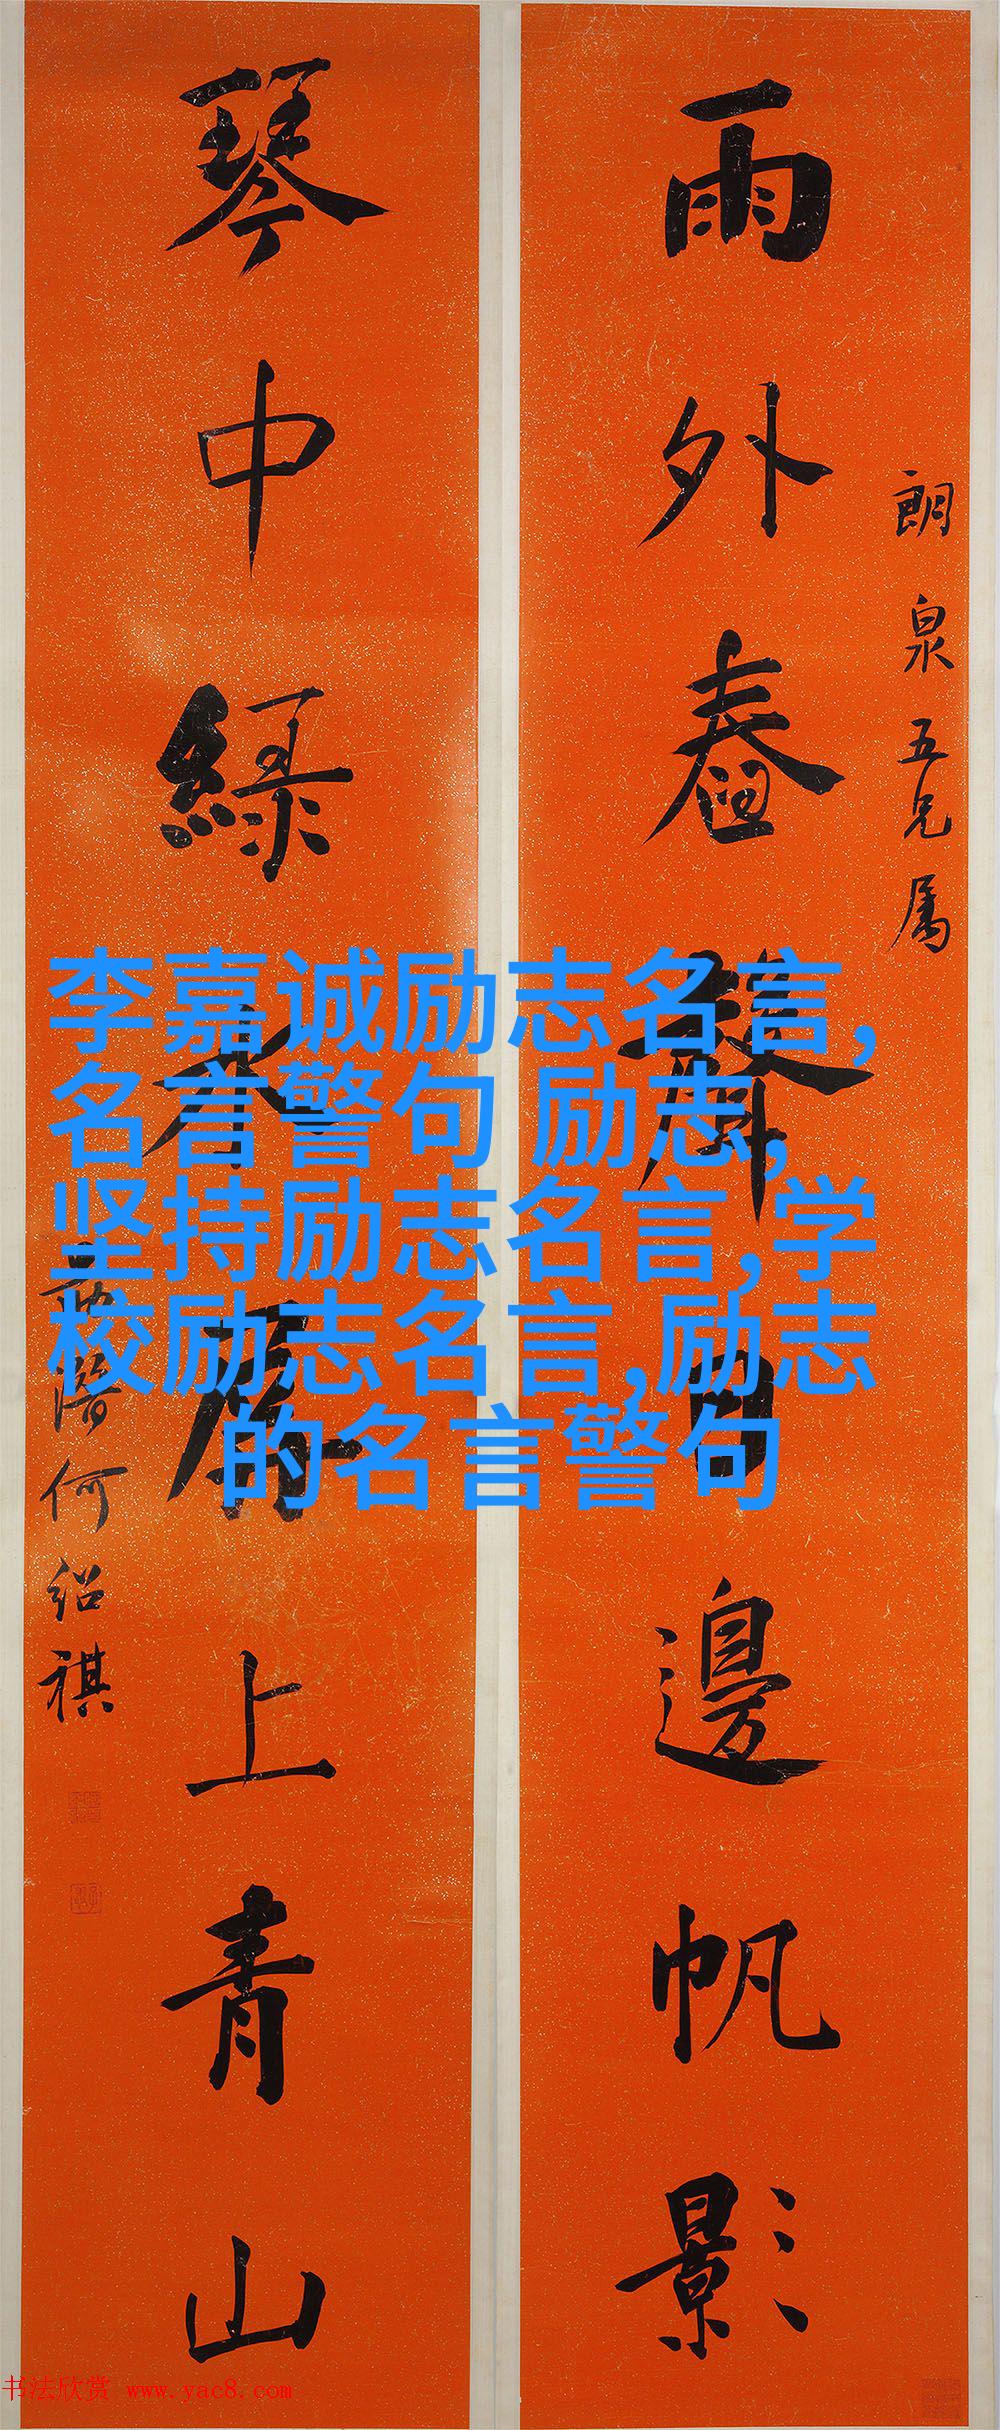 朗泉五兄属
雨外舂聲 邊帆影
琴中綠水屏上青山
勖潛何紹祺
李嘉诚励志名言,
名言警句 励志,
坚持励志名言,学
校励志名言,励志
的名言警句
书法欣赏 www.yac8.com